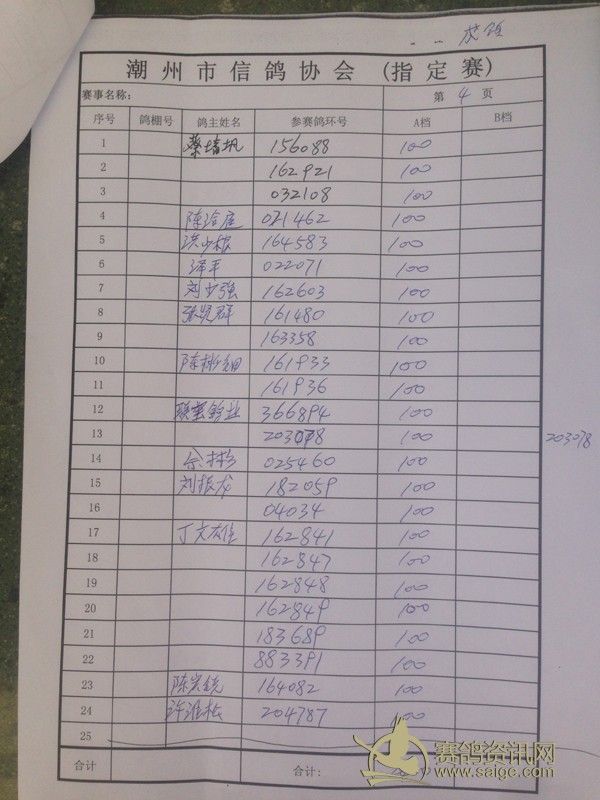 潮州市信鸽协会 (指定赛)
赛事名称: 第 4 页
序号 鸽棚号 鸽主姓名 参赛鸽环号 A档 B档
1 156088 100
2 162921 100
3 032108 100
4 021462 100
5 洪少根 164583 100
6 泽平 022071 100
7 刘少强 162603 100
8 张贤群 161480 100
9 163358 100
10 161933 100
11 161936 100
12 366894 100
13 203078 100 203078
14 佘彬 025460 100
15 刘振龙 182059 100
16 04034 100
17 162841 100
18 162847 100
19 162848 100
20 162849 100
21 183689 100
22 883391 100
23 164082 100
24 204787 100
25
合计 合计:
赛鸽资讯网
www.saige.com